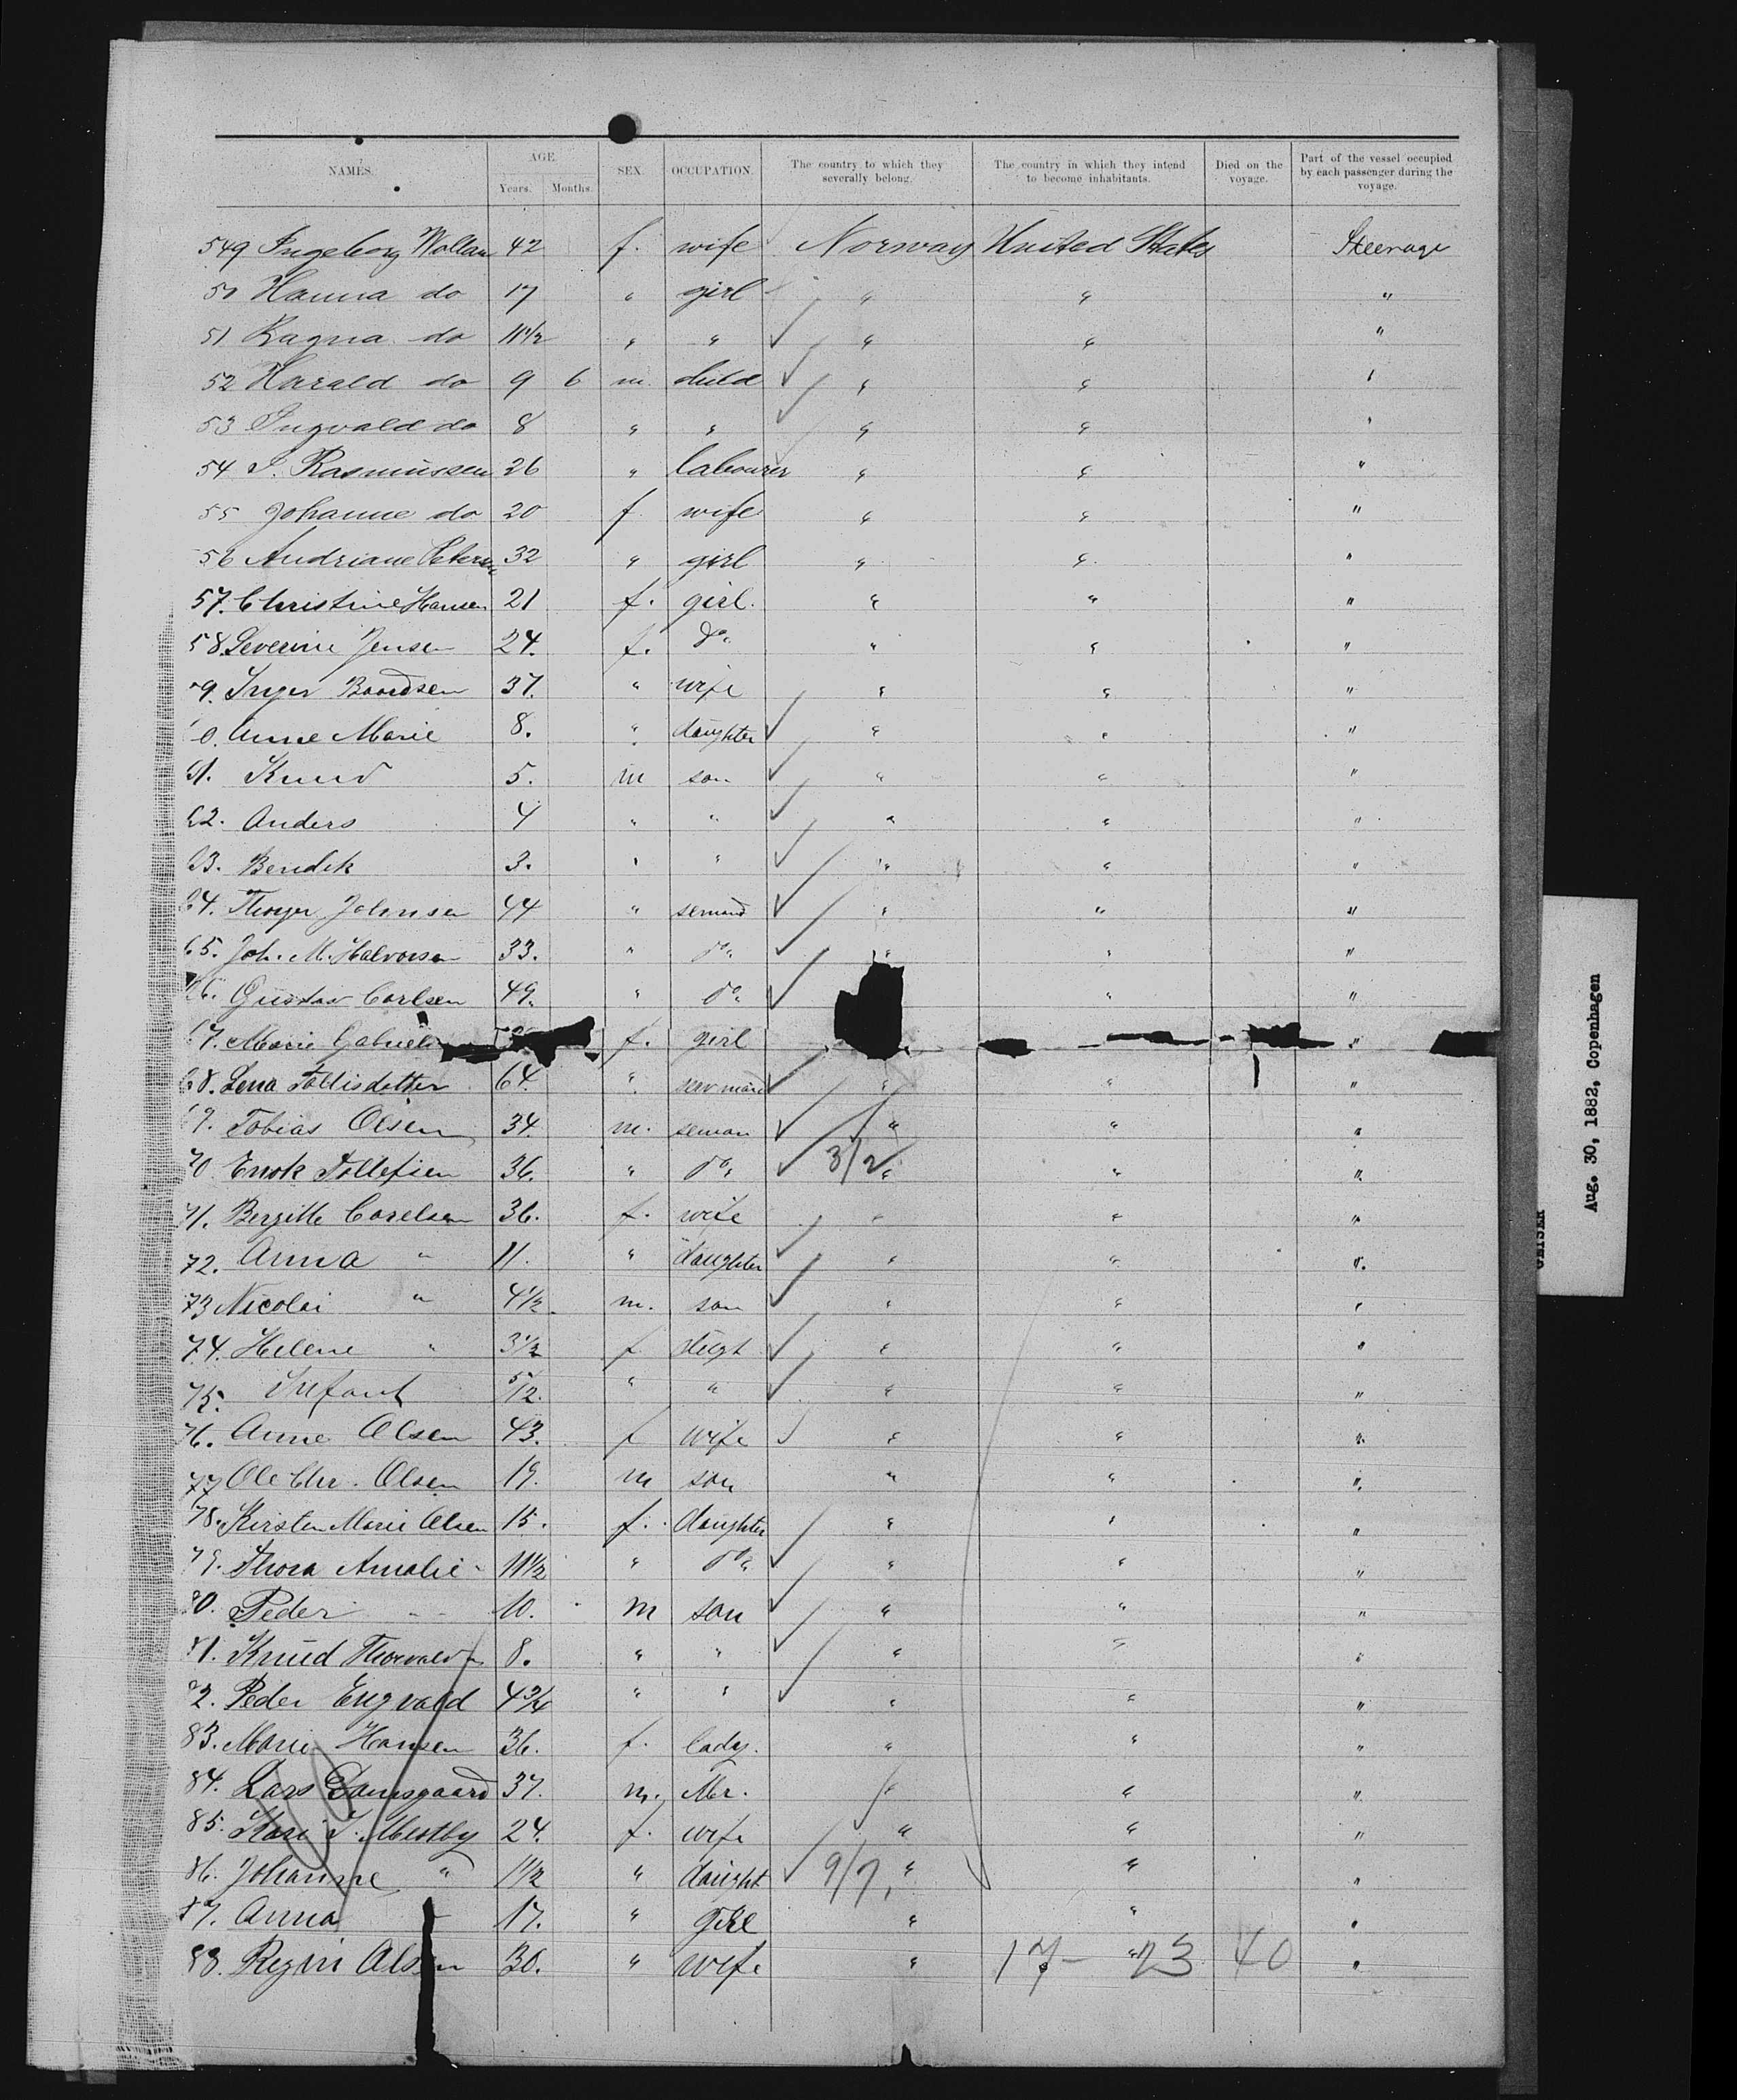 NAMES. AGE. SEX. OCCUPATION. The country to which they severally belong. The country in which they intend to become inhabitants. Died on the voyage. Part of the vessel occupied by each passenger during the voyage.
Years. Months.
549 Ingeborg Wollan 42 f. wife Norway United States Steerage
50 Hanna do 17 " girl " " "
51 Ragna do 11 1/2 " " " " "
52 Harald do 9 6 m. child " " "
53 Ingvald do 8 " " " " "
54 Rasmussen 26 " labourer " " "
55 Johanne do 20 f wife " " "
56 Andriane Petersen 32 " girl " " "
57. Christine Hansen 21 f. girl. " " "
58. Severine Jensen 24. f. do. " " "
59. Inger Baardsen 37. " wife " " "
60. Anne Marie 8. " daughter " " "
61. Knud 5. m son " " "
62. Anders 4 " " " " "
63. Bendik 3. " " " " "
64. Johnsen 44 " " " "
65. Joh. M. Halvorsen 33. " do. " " "
66. Gustav Carlsen 49. " do. " "
67. Marie f. girl "
68. Lena 64. " " " "
69. Tobias Olsen 34. m. seman " " "
70. Enok Tollefsen 36. " do. 3/2 " " "
71. Bergitte Carelsen 36. f. wife " " "
72. Anna " 11. " daughter " " "
73 Nicolai " 4 1/2. m. son " " "
74. Helene " 3 1/2 f " " "
75. Infant 5/12. " " " " "
76. Anne Olsen 43. f wife " " "
77 Ole Chr. Olsen 19. m son " " "
78. Kirsten Marie Olsen 15. f. daughter " " "
79. Thora Amalie " 11 1/2 " do. " " "
80. Peder " 10. m son " " "
81. Knud 8. " " " " "
82. Peder Engvald 4 3/4 " " " " "
83. Marie Hansen 36. f. lady. " " "
84. Lars Damsgaard 37. m. Mr. " " "
85. Kari 24. f. wife " " "
86. Johanne " 1 1/2 " daught 9/7, " " "
87. Anna 17. " girl " " "
88. Olsen 30. " wife " 17 - 23 40 "
GEISER
Aug. 30, 1882, Copenhagen